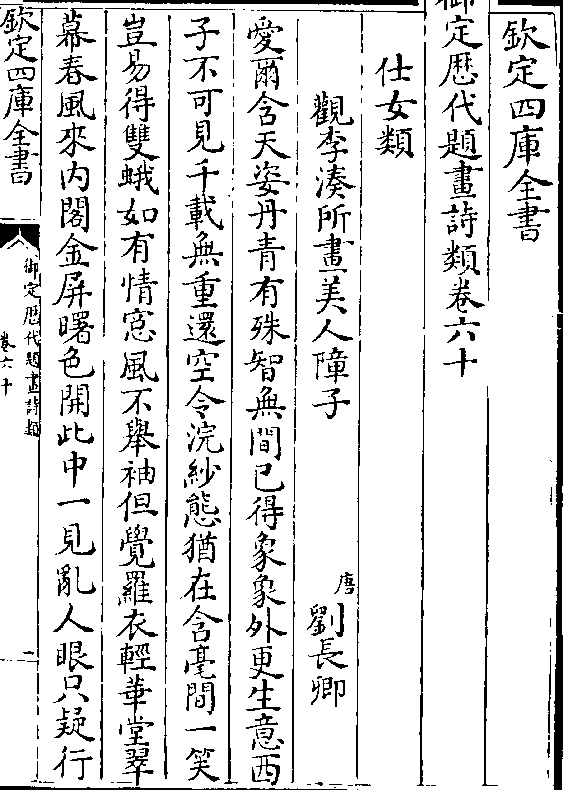 欽定四庫全書
御定歴代題畫詩類卷六十
仕女類
觀李湊所畫美人障子 唐 劉長卿
愛爾含天姿丹青有殊智無間已得象象外更生意西
子不可見千載無重還空令浣紗態猶在含毫間一笑
豈易得雙蛾如有情窓風不舉袖但覺羅衣輕華堂翠
幕春風來内閣金屏曙色開此中一見亂人眼只疑行
欽定四庫全書
御定歴代題畫詩類
卷六十
一